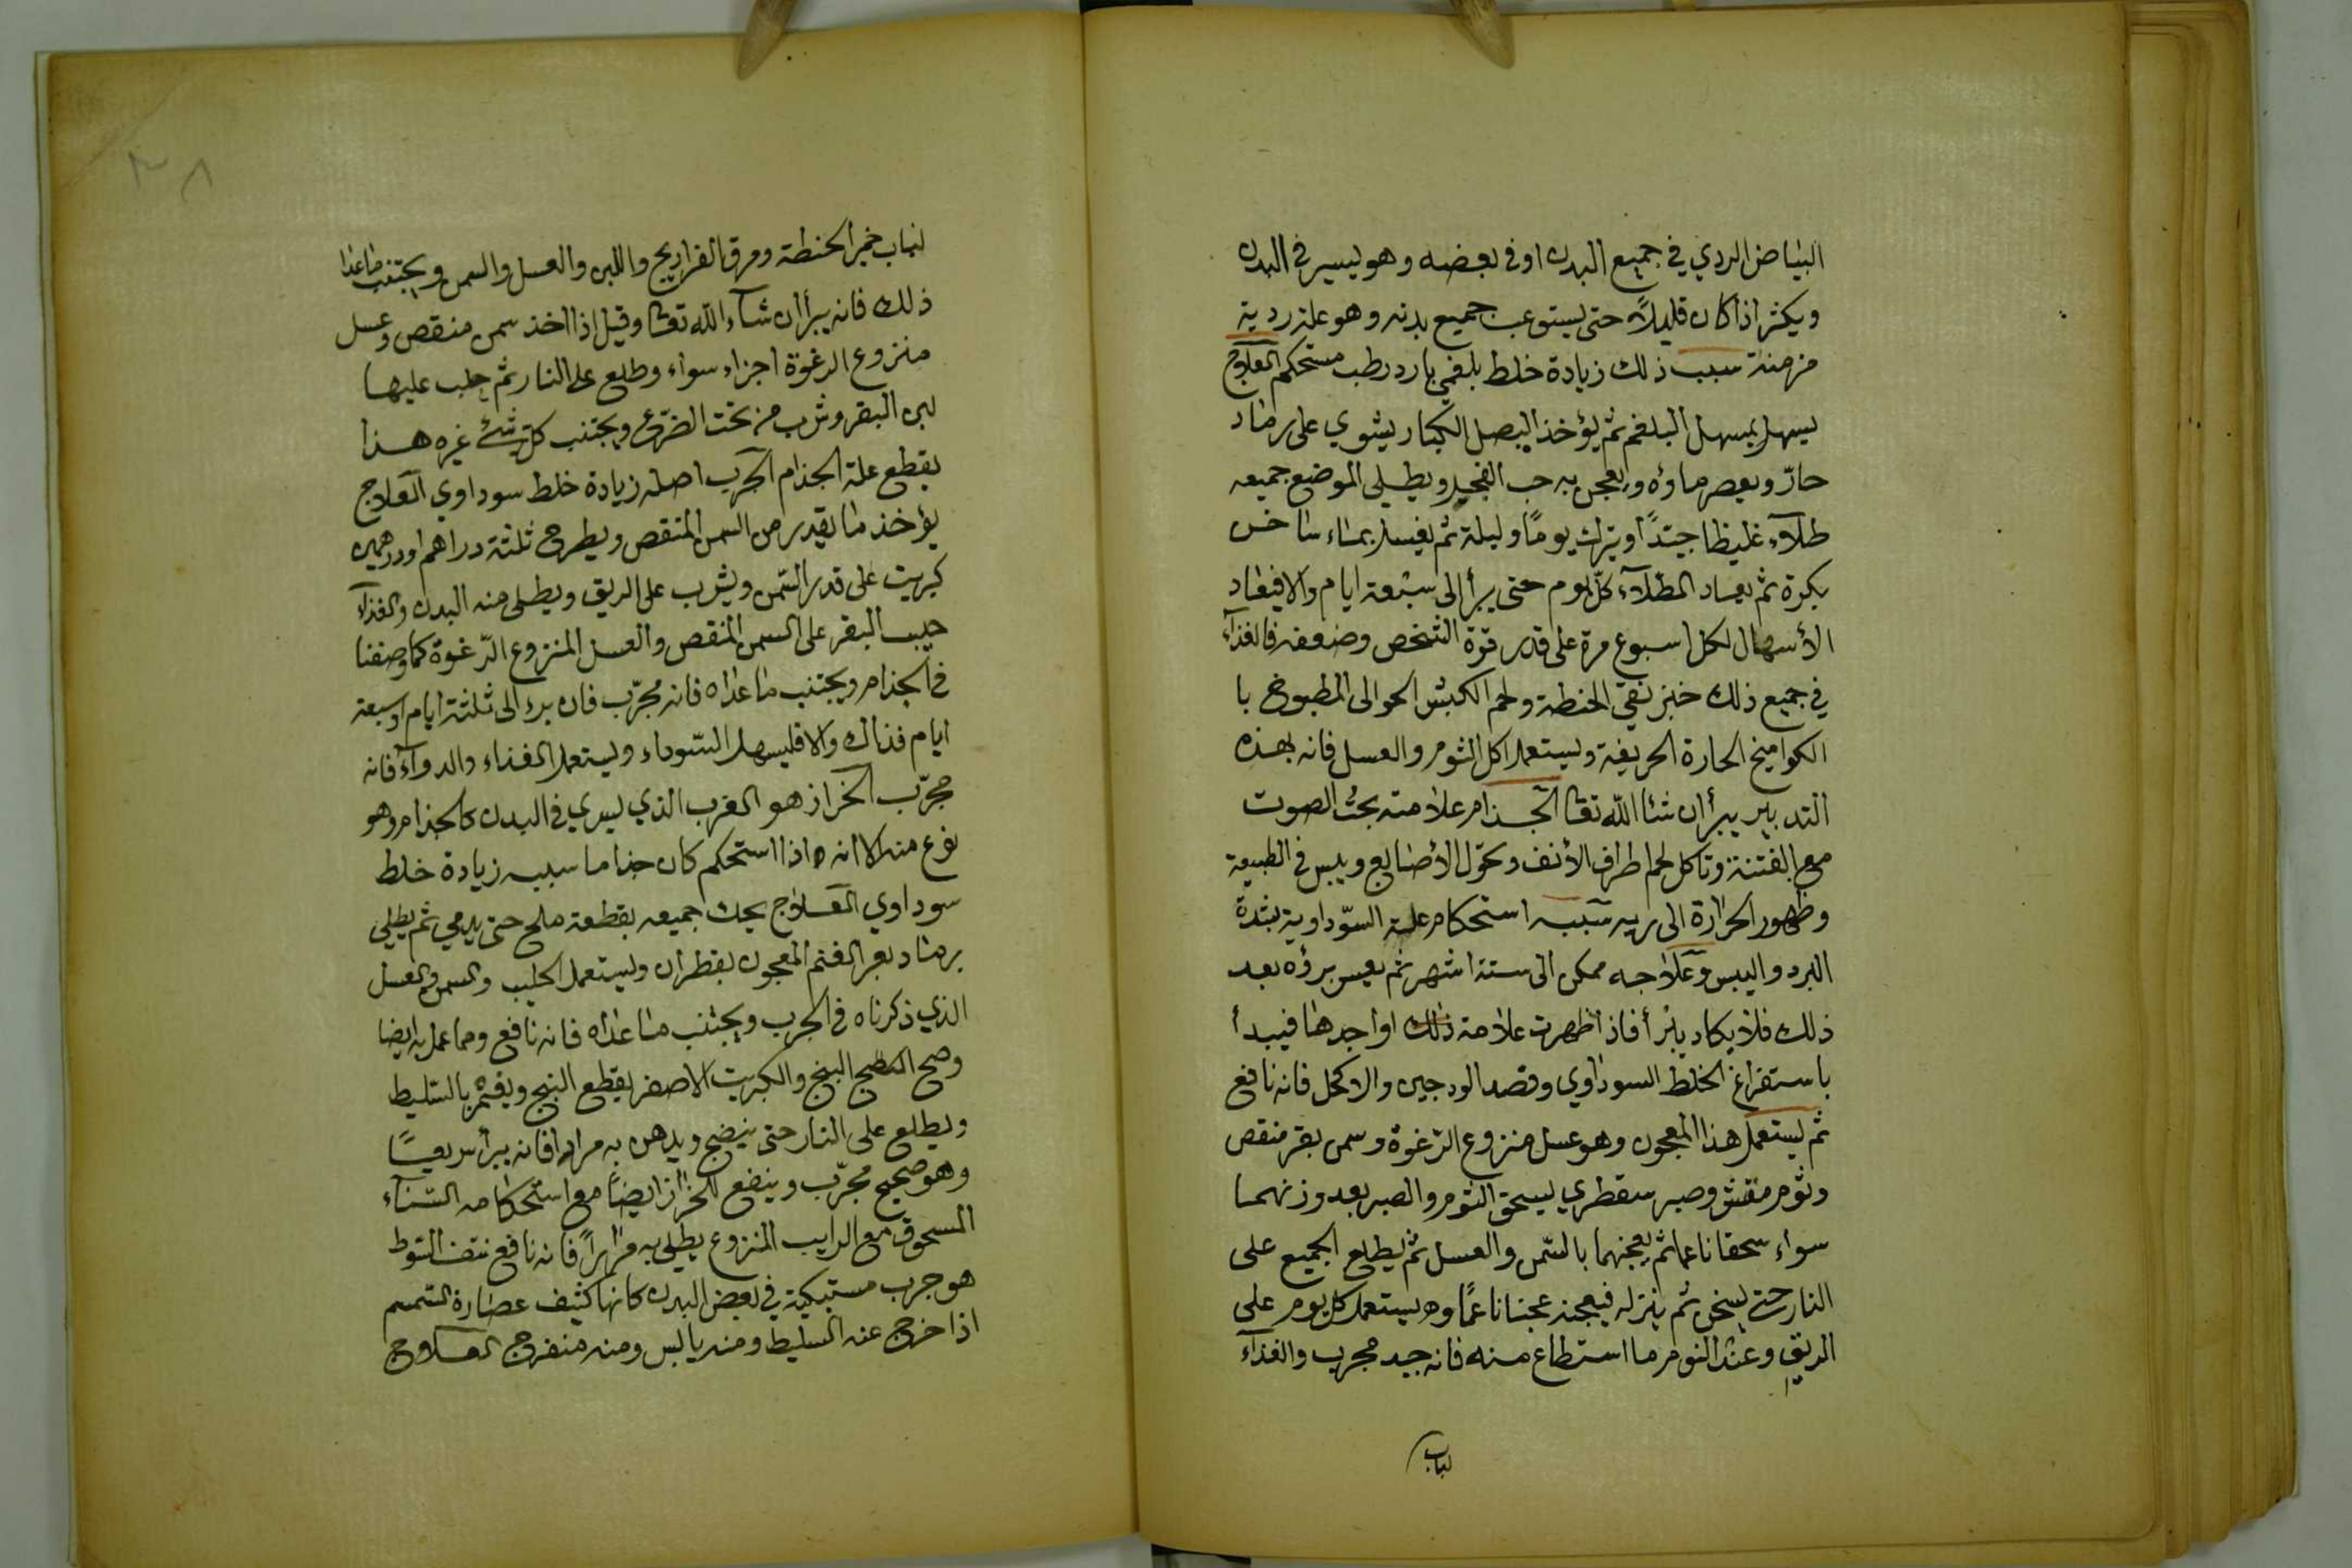 البياض الردي في جميع البدن او في بعضه وهو يسير في البدن
ويكثر اذا كان قليلاً حتى يستوعب جميع بدنه وهو علة ردية
مزمنة سبب ذلك زيادة خلط بلغمي بارد رطب مستحكم العلاج
يسهل بمسهل البلغم ثم يؤخذ البصل الكبار يشوي على رماد
حارّ ويعصر ماؤه ويعجن به حب الفجل ويطلى الموضع جميعه
طلآء غليظا جيّدًا ويترك يومًا وليلة ثم يغسل بماء ساخن
بكرة ثم يعاد الطلآء كلّ يوم حتى يبرأ الى سبعة ايام والا فيعاد
الأسهال لكل اسبوع مرة على قدر قوّة الشخص وضعفه فالغذآء
في جميع ذلك خبز نقي الحنطة ولحم الكبش الحوالى المطبوخ با
الكواميخ الحارة الحريفة ويستعمل اكل الثوم والعسل فانه بهذه
التدبير يبرأ ان شا الله تعا الجذام علامته بحث الصوت
مع الفتنة وتاكل لحم اطراف الأنف وتحوّل الأصابع ويبس في الطبيعة
وظهور الحرارة الى ريه سببه استحكام علية السوّداوية بشدة
البرد واليبس وعلاجه ممكن الى ستة اشهر ثم يعيس برؤه بعد
ذلك فلا يكاد يبرأ فاذا ظهرت علامة ذلك او احدها فيبدأ
باستفراغ الخلط السوداوي وفصد الودجين والاكحل فانه نافع
ثم يستعمل هذا المعجون وهو عسل منزوع الرّغوة وسمن بقر منقص
وثوم مقشر وصبر سقطري يسحق الثوم والصبر بعد وزنهما
سواء سحقا ناعما ثم يعجنهما بالسّمن والعسل ثم يطلع الجميع على
النار حتى يسخن ثم ينزله فيعجنه عجنا ناعمًا ويستعمل كل يوم على
الريق وعند النوم ما استطاع منه فانه جيد مجرب والغذآء
لباب
٣٨
لباب خبز الحنطة ومرق الفراريج واللبن والعسل والسمن ويجتنب ما عدا
ذلك فانه يبرأ ان شآء الله تعا وقيل اذا اخذ سمن منقص وعسل
منزوع الرغوة اجزاء سواء وطلع على النار ثم حلب عليها
لبن البقر وشرب من تحت الضّرع ويجتنب كل شئ غيره هذا
يقطع علة الجذام الجرب اصله زيادة خلط سوداوي العلاج
يؤخذ ما يقدر من السمن المنقص ويطرح ثلثة دراهم او درهمين
كبريت على قدر السّمن ويشرب على الريق ويطلى منه البدن والغذآء
حليب البقر على السمن المنقص والعسل المنزوع الرّغوة كما وصفنا
في الجذام ويجتنب ما عداه فانه مجرّب فان برء الى ثلثة ايام او سبعة
ايام فذاك والا فليسهل السّوداء ويستعمل الغذاء والدوآء فانه
مجرّب الخراز هو القرب الذي يسري في البدن كالجذام وهو
نوع منه الا انه اذا استحكم كان جذاما سببه زيادة خلط
سوداوي العلاج يحك جميعه بقطعة ملح حتى يدمي ثم يطلى
برماد بعر الغنم المعجون بقطران ويستعمل الحليب والسمن والعسل
الذي ذكرناه في الجرب ويجتنب ما عداه فانه نافع ومما عمل به ايضا
وصح البنج والكبريت الاصفر يقطع البنج ويغمر بالسّليط
ويطلع على النار حتى ينضج ويدهن به مرارا فانه يبرأ سريعًا
وهو صحيح مجرّب وينفع للخراز ايضًا مع استحكامه السّنآء
المسحوق مع الرايب المنزوع يطلى به مرارًا فانه نافع
هو جرب مستبكية في بعض البدن كانها كثيف عصارة السّمسم
اذا خرج عنه السليط ومنه يابس ومنه منفرج العلاج